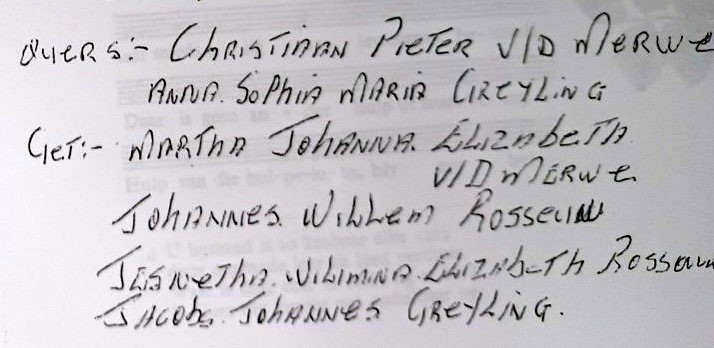 Ouers:- Christiaan Pieter v/d Merwe
Anna Sophia Maria Greyling
Get:- Martha Johanna Elizabeth
v/d Merwe
Johannes Willem Rosseau
Elizabeth
Jacobs Johannes Greyling.